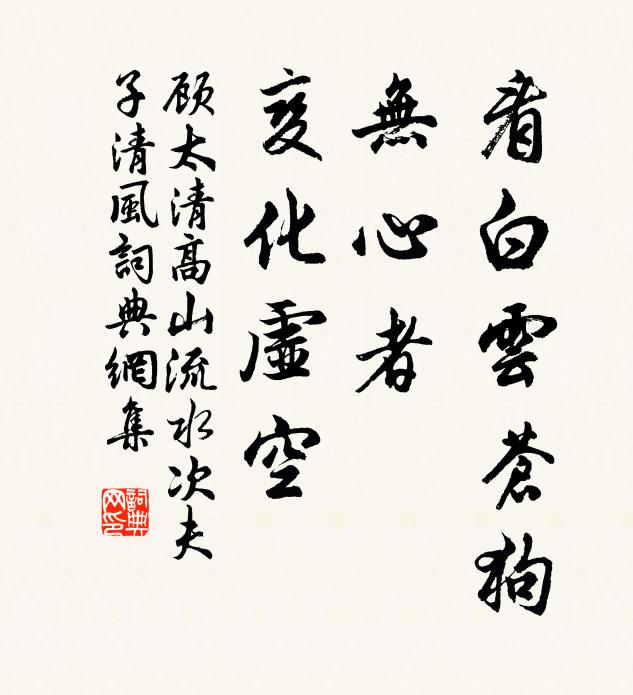 看白雲蒼狗
無心者
變化虛空
顧太清高山流水次夫
子清風詞典網集
詞典网印